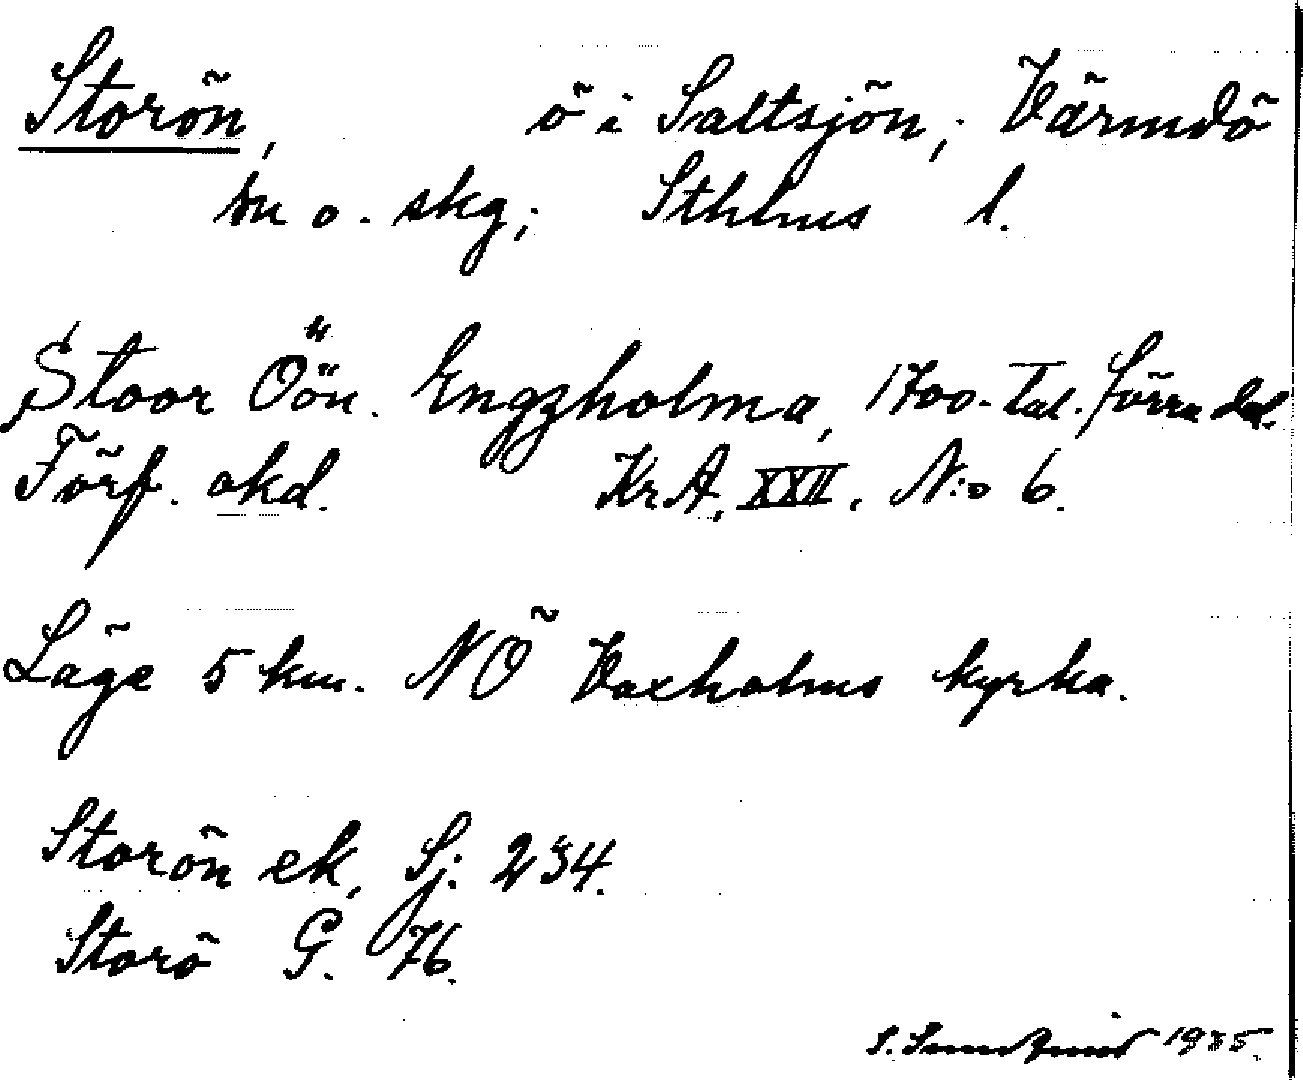 Storön, ö i Saltsjön, Värmdö
sn o. skg; Sthlms l.
Stoor Öön. Engzholma, 1700-tal. förra del.
Förf. okd. KrA, XXII, N:o 6.
Läge 5 km. NÖ Vaxholms kyrka.
Storön ek, Sj. 234.
Storö G. 76.
S. 1935.